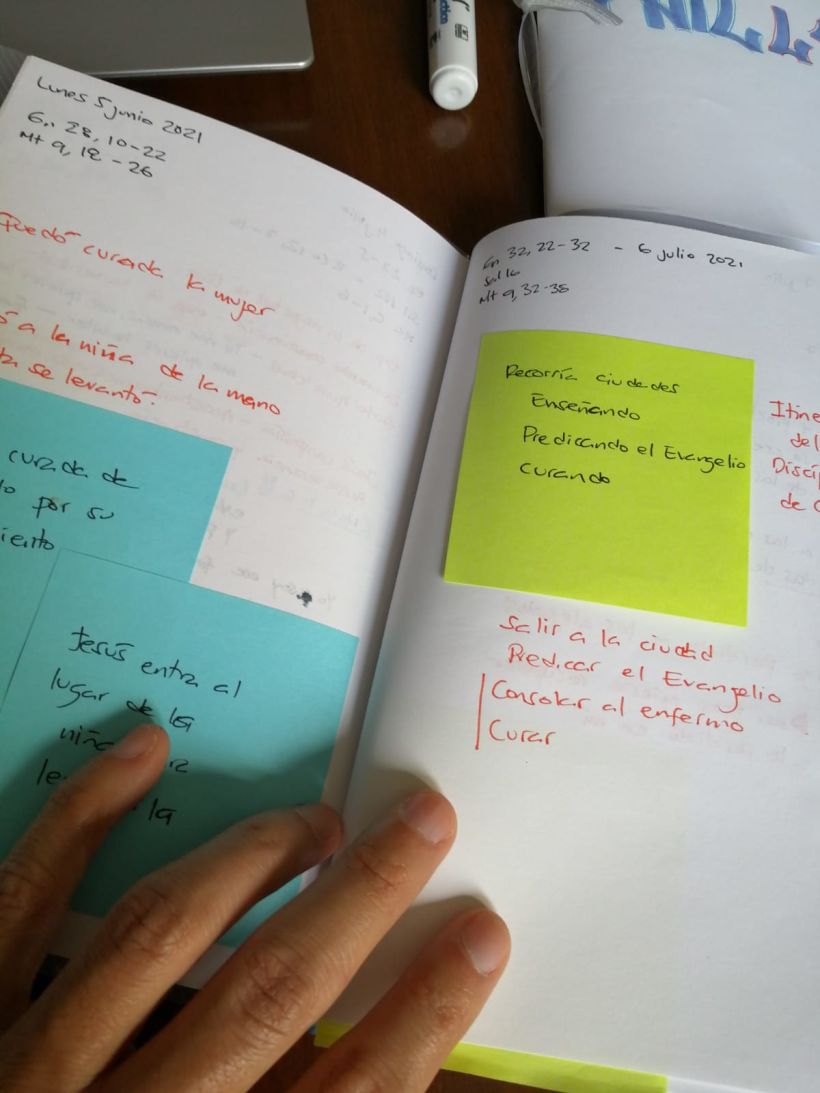 Lunes 5 junio 2021
Gn 28, 10-22
Mt 9, 18-26
Quedó curada la mujer
a la niña de la mano
se levantó.
curada de
por su
Jesús entra al
lugar de la
niña
la
Gn 32, 22-32 - 6 julio 2021
Sal 16
Mt 9, 32-38
Recorría ciudades
Enseñando
Predicando el Evangelio
curando
Itine
del
Discíp
de
Salir a la ciudad
Predicar el Evangelio
Consolar al enfermo
Curar